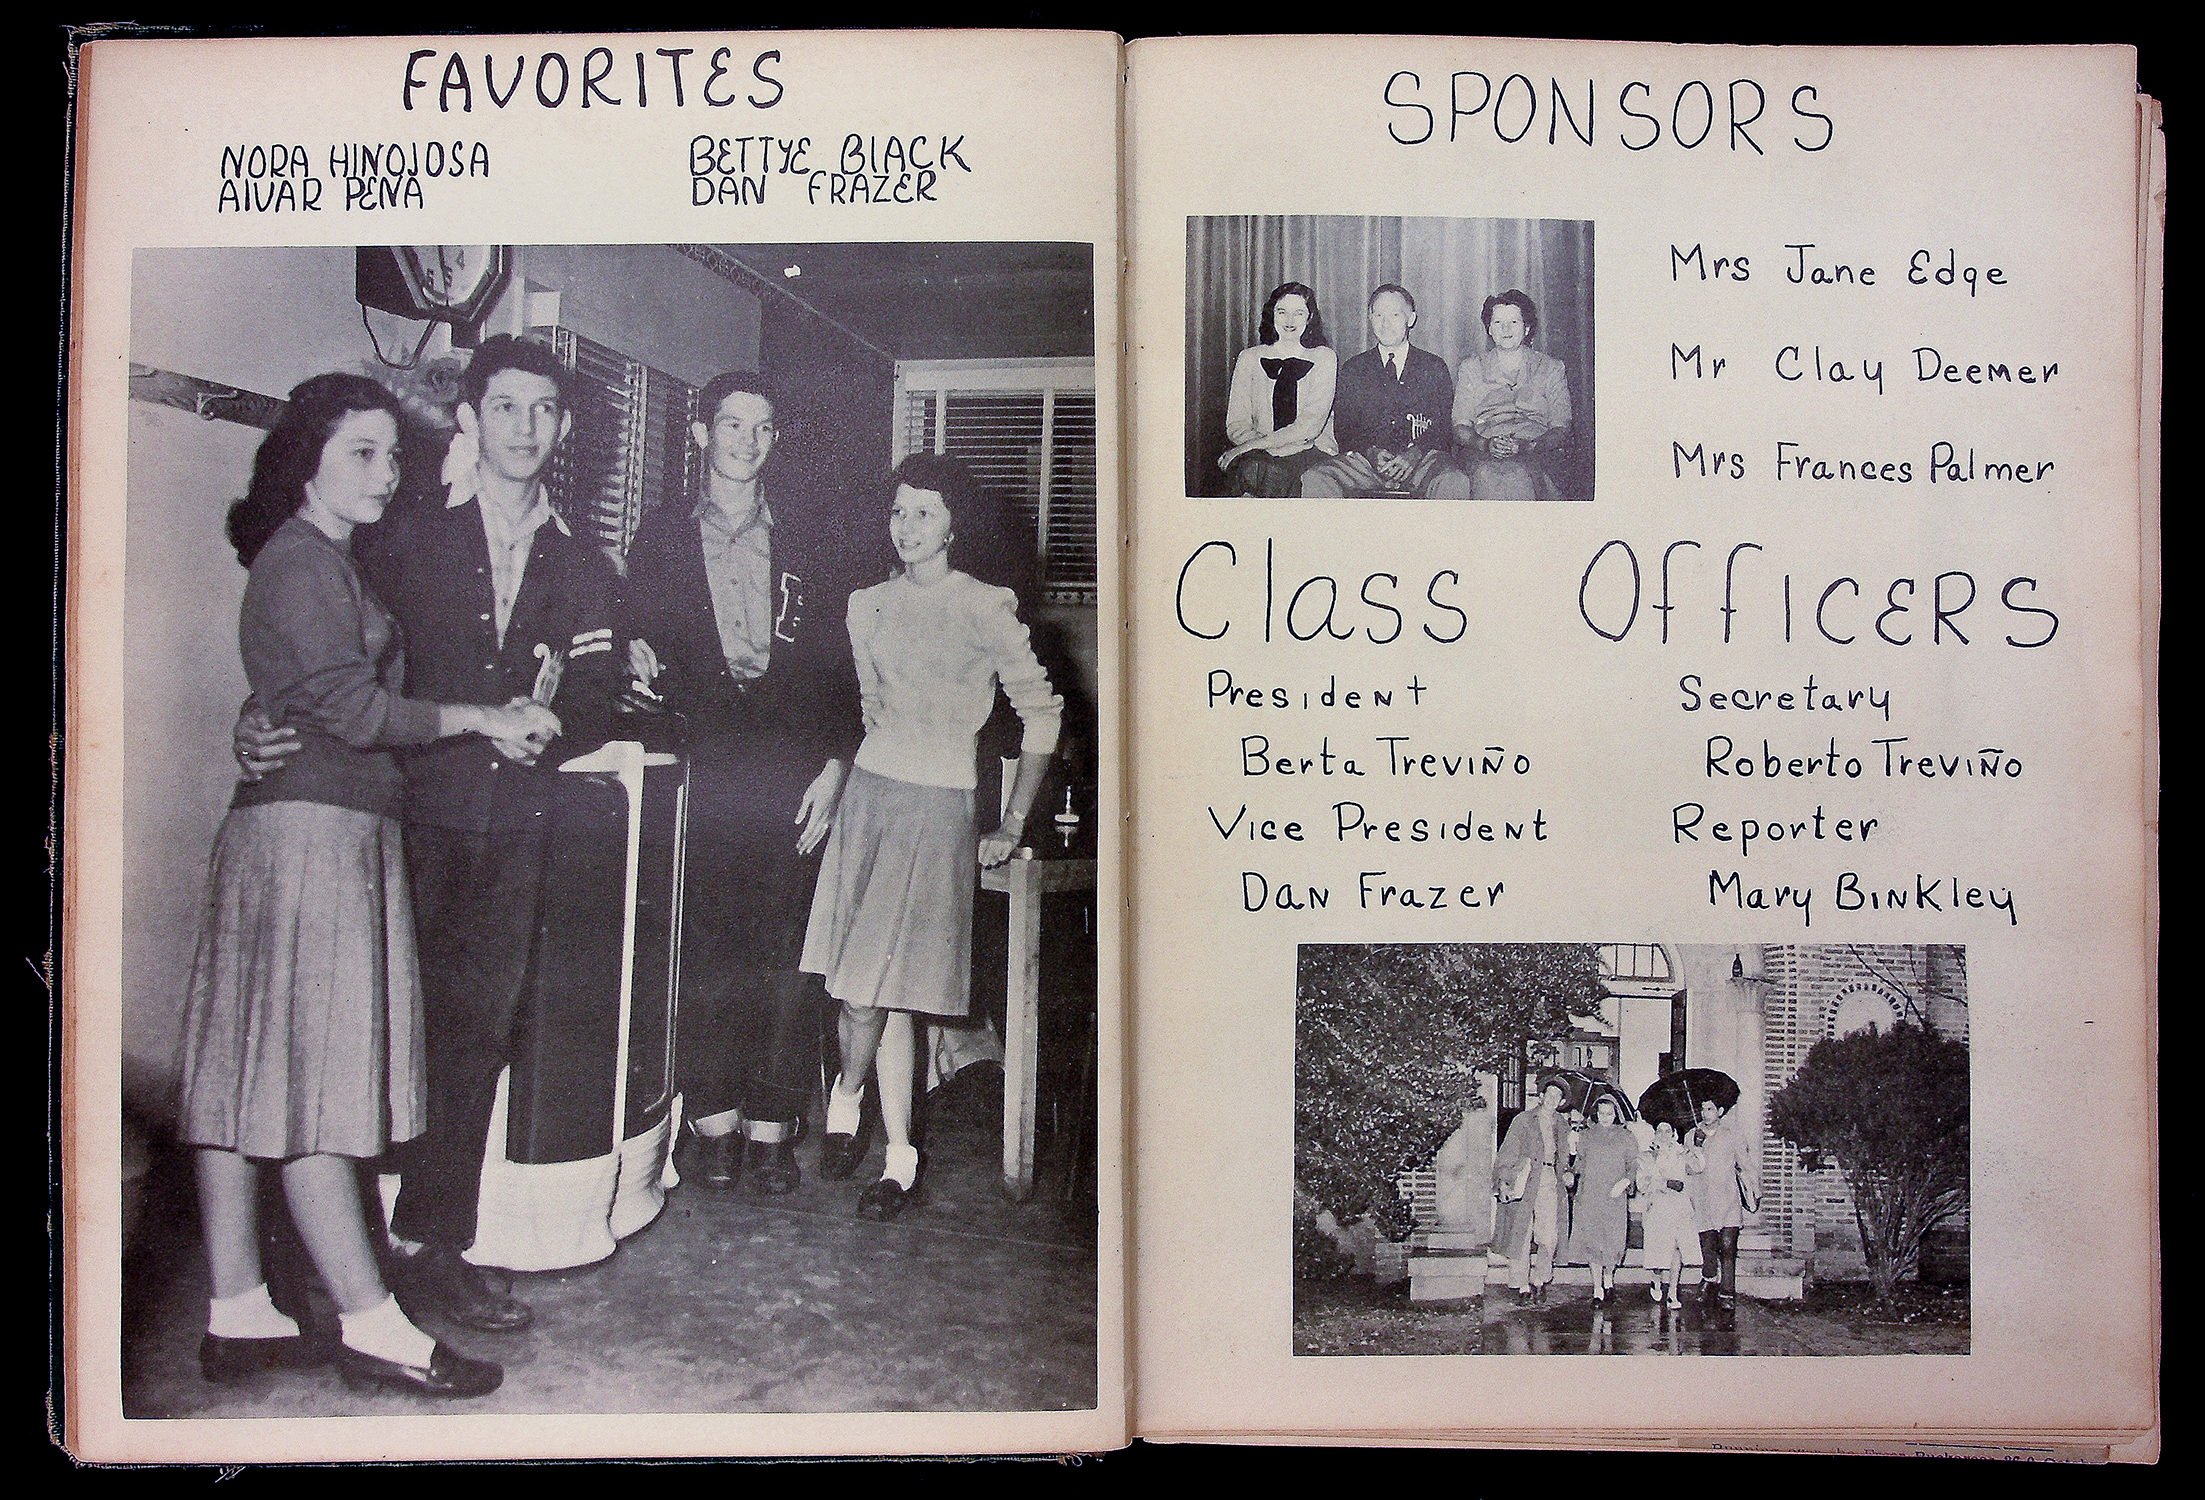 FAVORITES
NORA HINOJOSA
AlVAR PENA
BETTYE BlACK
DAN FRAZER
SPONSORS
Mrs Jane Edge
Mr Clay Deemer
Mrs Frances Palmer
Class Officers
President
Berta Treviño
Vice President
Dan Frazer
Secretary
Roberto Treviño
Reporter
Mary Binkley